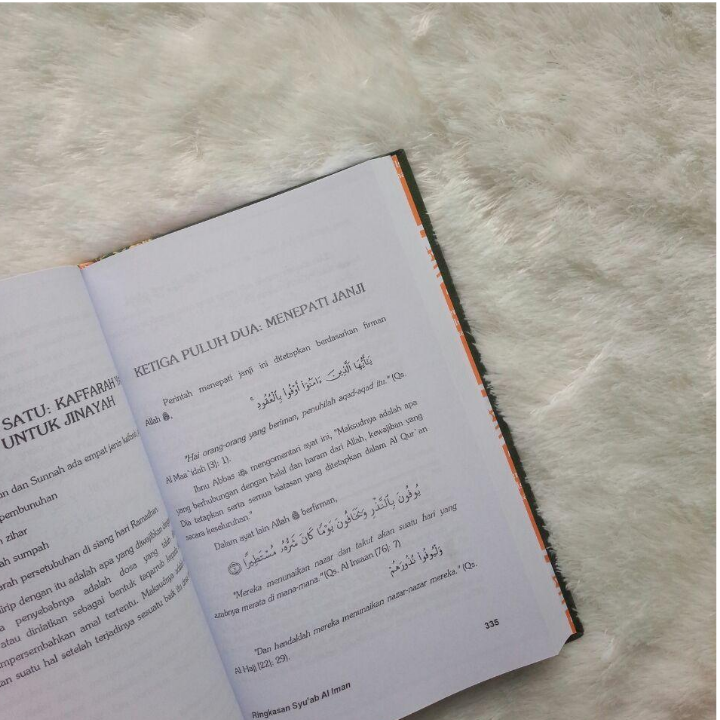 SATU: KAFFARAH
UNTUK JINAYAH
an dan Sunnah ada empat jenis kaffarah
pembunuhan
h zihar
ah sumpah
arah persetubuhan di siang hari Ramadan.
irip dengan itu adalah apa yang diwajibkan
a penyebabnya adalah dosa yang
atau diniatkan sebagai bentuk taqarub
mpersembahkan amal tertentu. Maksudnya
an suatu hal setelah terjadinya sesuatu baik itu
KETIGA PULUH DUA: MENEPATI JANJI
Perintah menepati janji ini ditetapkan berdasarkan firman
Allah ﷻ,
يَٰٓأَيُّهَا ٱلَّذِينَ ءَامَنُوٓا۟ أَوْفُوا۟ بِٱلْعُقُودِ ۚ
"Hai orang-orang yang beriman, penuhilah aqad-aqad itu." (Qs.
Al Maa`idah [3]: 1).
Ibnu Abbas ؓ mengomentari ayat ini, "Maksudnya adalah apa
yang berhubungan dengan halal dan haram dari Allah, kewajiban yang
Dia tetapkan serta semua batasan yang ditetapkan dalam Al Qur`an
secara keseluruhan."
Dalam ayat lain Allah ﷻ berfirman,
يُوفُونَ بِٱلنَّذْرِ وَيَخَافُونَ يَوْمًا كَانَ شَرُّهُۥ مُسْتَطِيرًا ۝
"Mereka menunaikan nazar dan takut akan suatu hari yang
azabnya merata di mana-mana." (Qs. Al Insaan [76]: 7)
وَلْيُوفُوا۟ نُذُورَهُمْ
"Dan hendaklah mereka menunaikan nazar-nazar mereka." (Qs.
Al Hajj [22]: 29).
335
Ringkasan Syu'ab Al Iman